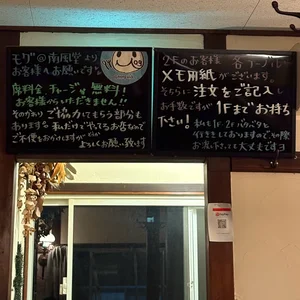 モグ@南風堂より
お客様へお願いです。
席料金、チャージは無料!
お客様からいただきません!!
そのかわりご協力してもらう部分も
ありますな 私だけでやってるお店なので
ご不便もおかけしますが
よろしくお願い致します
2Fのお客様 各テーブルに
メモ用紙がございます。
そちらに注文をご記入し
お手数ですが1Fまでお持ち
下さい!
私も1F・2F
行き来しておりますので、その際
お渡し下さっても大丈夫です